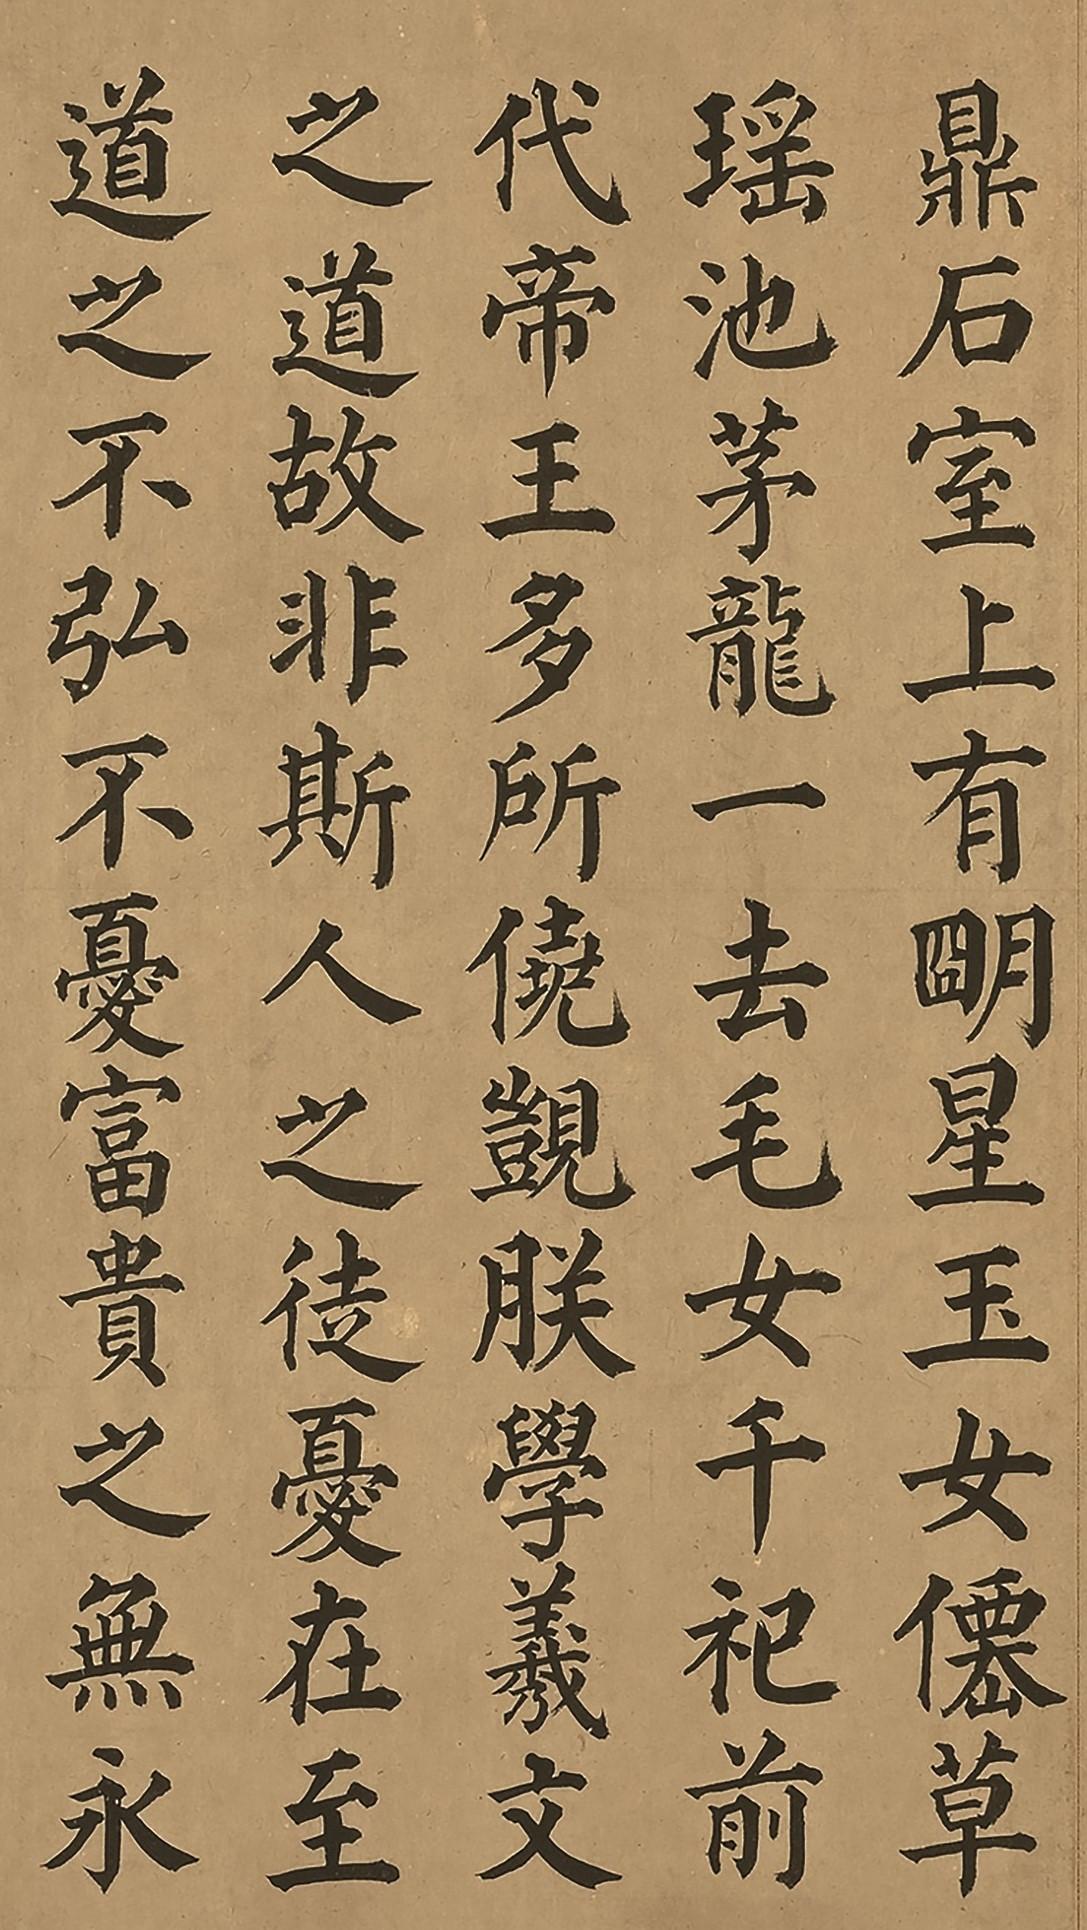 鼎石室上有朙星玉女僊草
瑶池茅龍一去毛女千祀前
代帝王多所僥覬朕學羲文
之道故非斯人之徒憂在至
道之不弘不憂富貴之無永